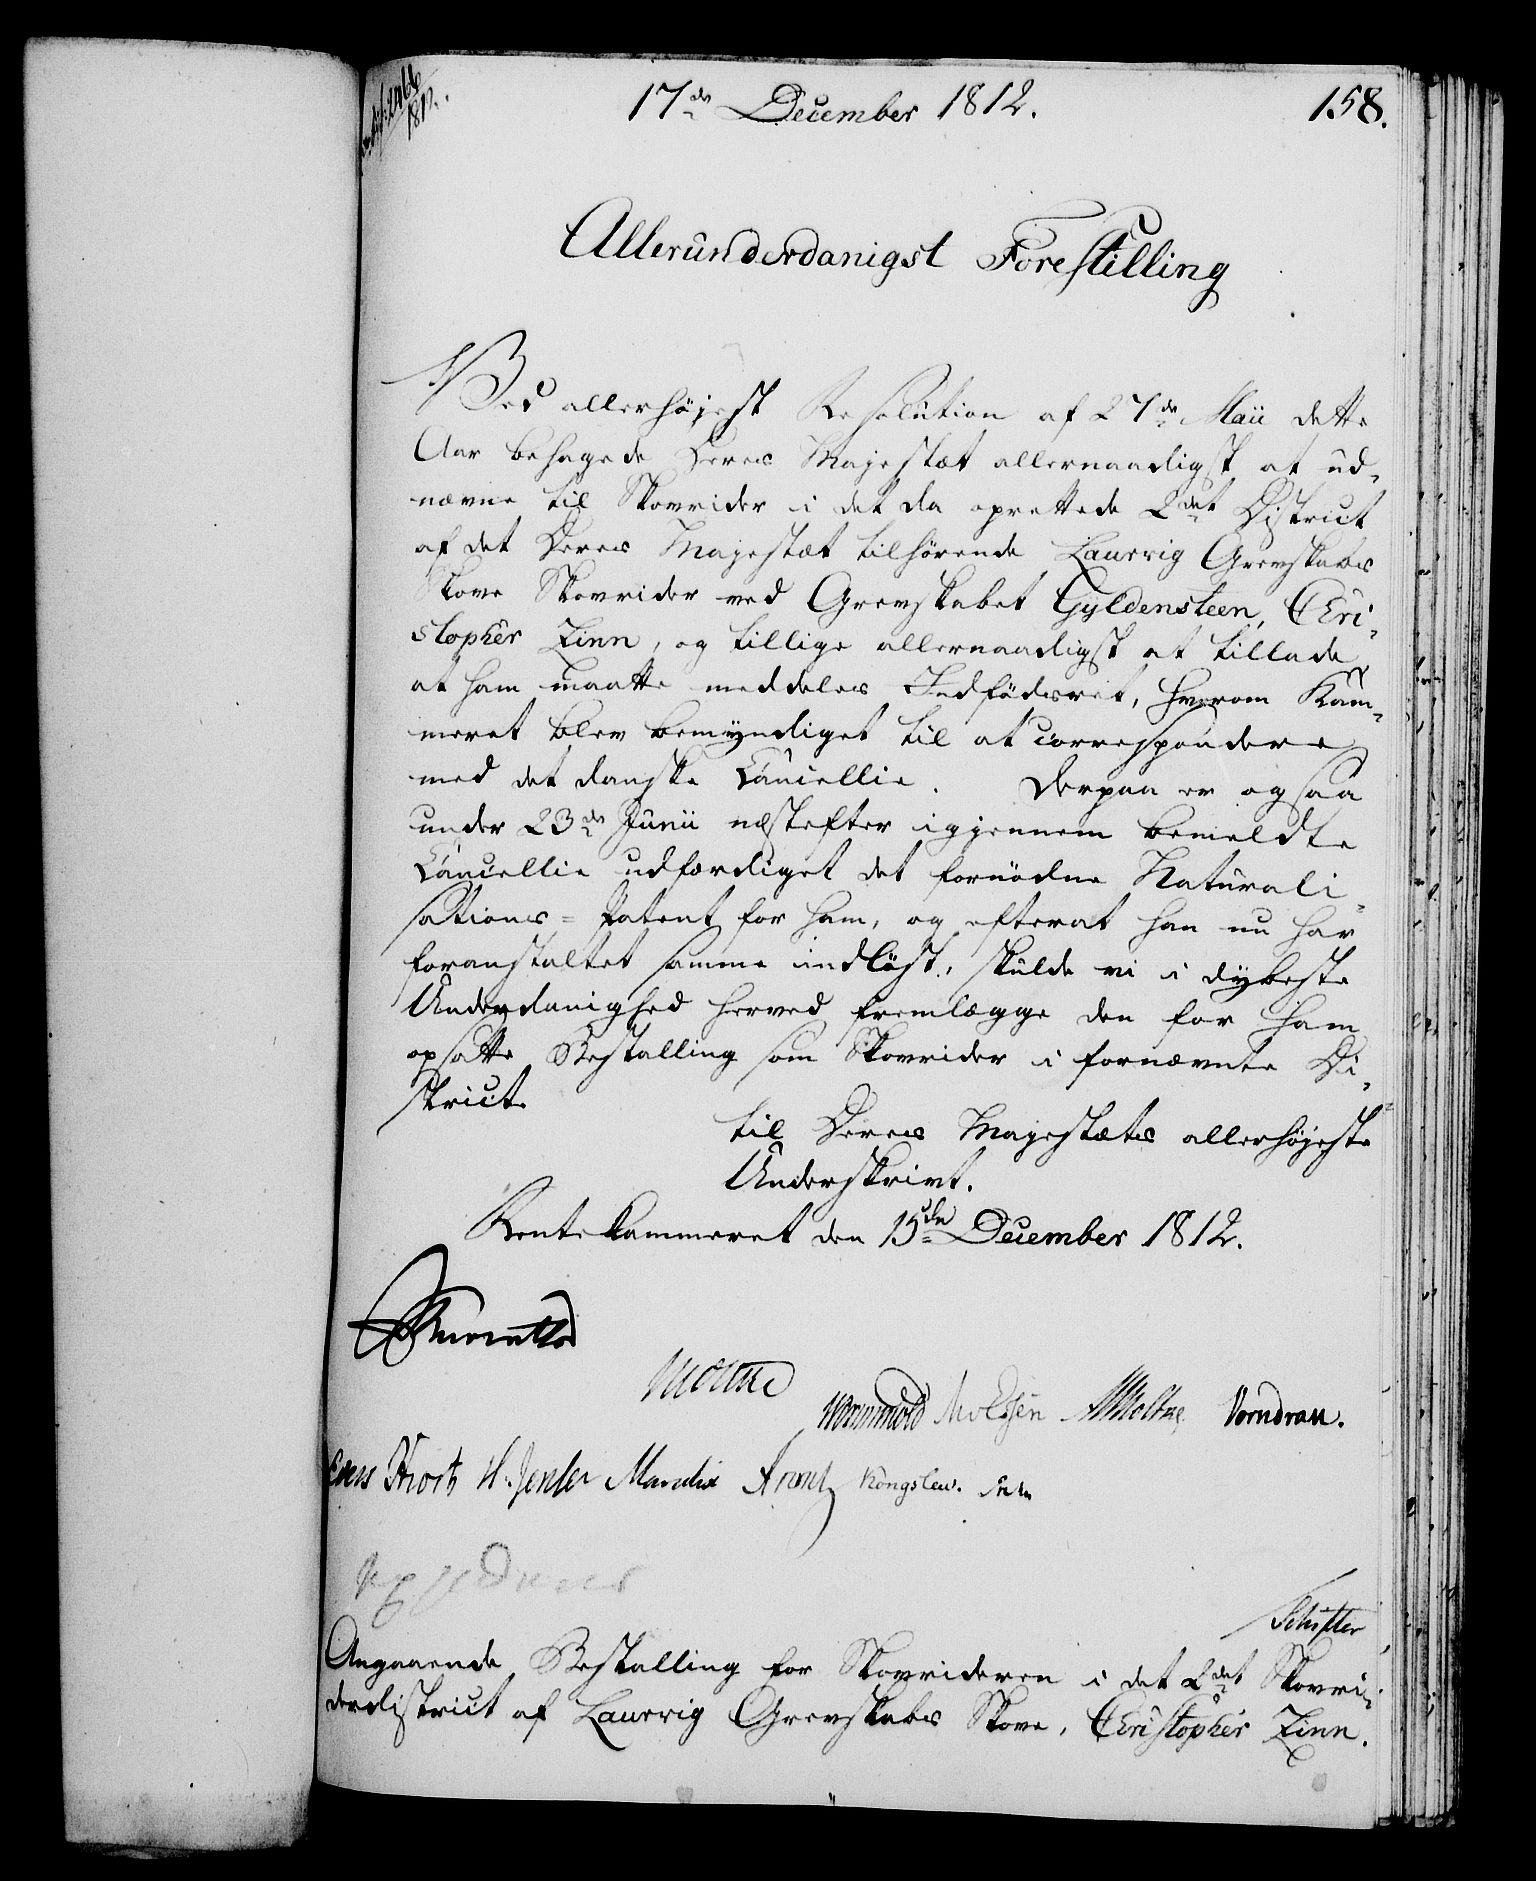 17de December 1812.
158.
1812.
Allerunderdanigst Forestilling
Ved allerhöjest Resolution af 27de Maii dette
Aar behagede Deres Majestæt allernaadigst at ud-
nævne til Skovrider i det da oprettede 2det District
af det Deres Majestæt tilhørende Laurvig Grevskabs
Skove Skovrider ved Grevskabet Gyldensteen, Chri-
stopher Zinn, og tillige allernaadigst at tillade
at ham maatte meddeles Indfödsret, hvorom Kam-
meret blev bemyndiget til at correspondere
med det danske Cancellie. Derpaa er ogsaa
under 23de Junii næstefter igjennem bemeldte
Cancellie udfærdiget det fornödne Naturali-
sations-Patent for ham, og efterat han nu har
foranstaltet samme indlöst, skulde vi i dybeste
Underdanighed herved fremlægge den for ham
opsatte Bestalling som Skovrider i fornævnte Di-
strict
til Deres Majestæts allerhöjeste
Underskrivt.
Rentekammeret den 15de December 1812.
Moltke
Wormskiold AWMoltke Vorndran.
Hiort H. Jensen Arentz Kongslew.
Schifter
Angaaende Bestalling for Skovrideren i det 2det Skovri-
derdistrict af Laurvig Grevskabs Skove, Christopher Zinn.